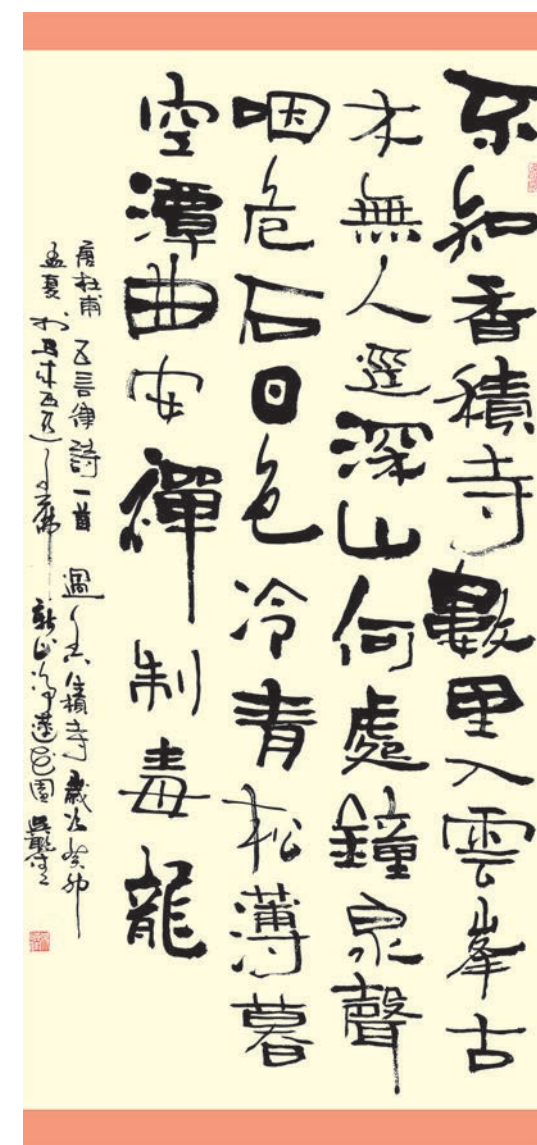 不知香積寺數里入雲峯古
木無人逕深山何處鐘泉聲
咽危石日色冷青松薄暮
空潭曲安禪制毒龍
唐杜甫 五言律詩一首 過香積寺 歲次癸卯
孟夏 於馬來西亞 新山